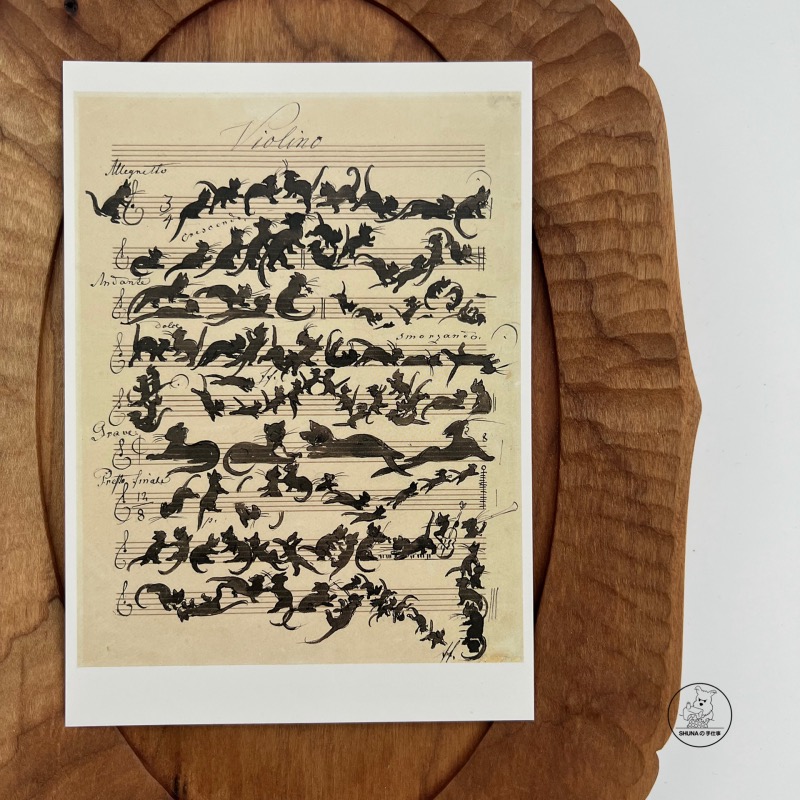 Violino
Allegretto
3
4
crescendo
Andante
dolce
smorzando.
ff.
Grave
8
Presto finale
12
8
p.
ff.
SHUNAの手仕事